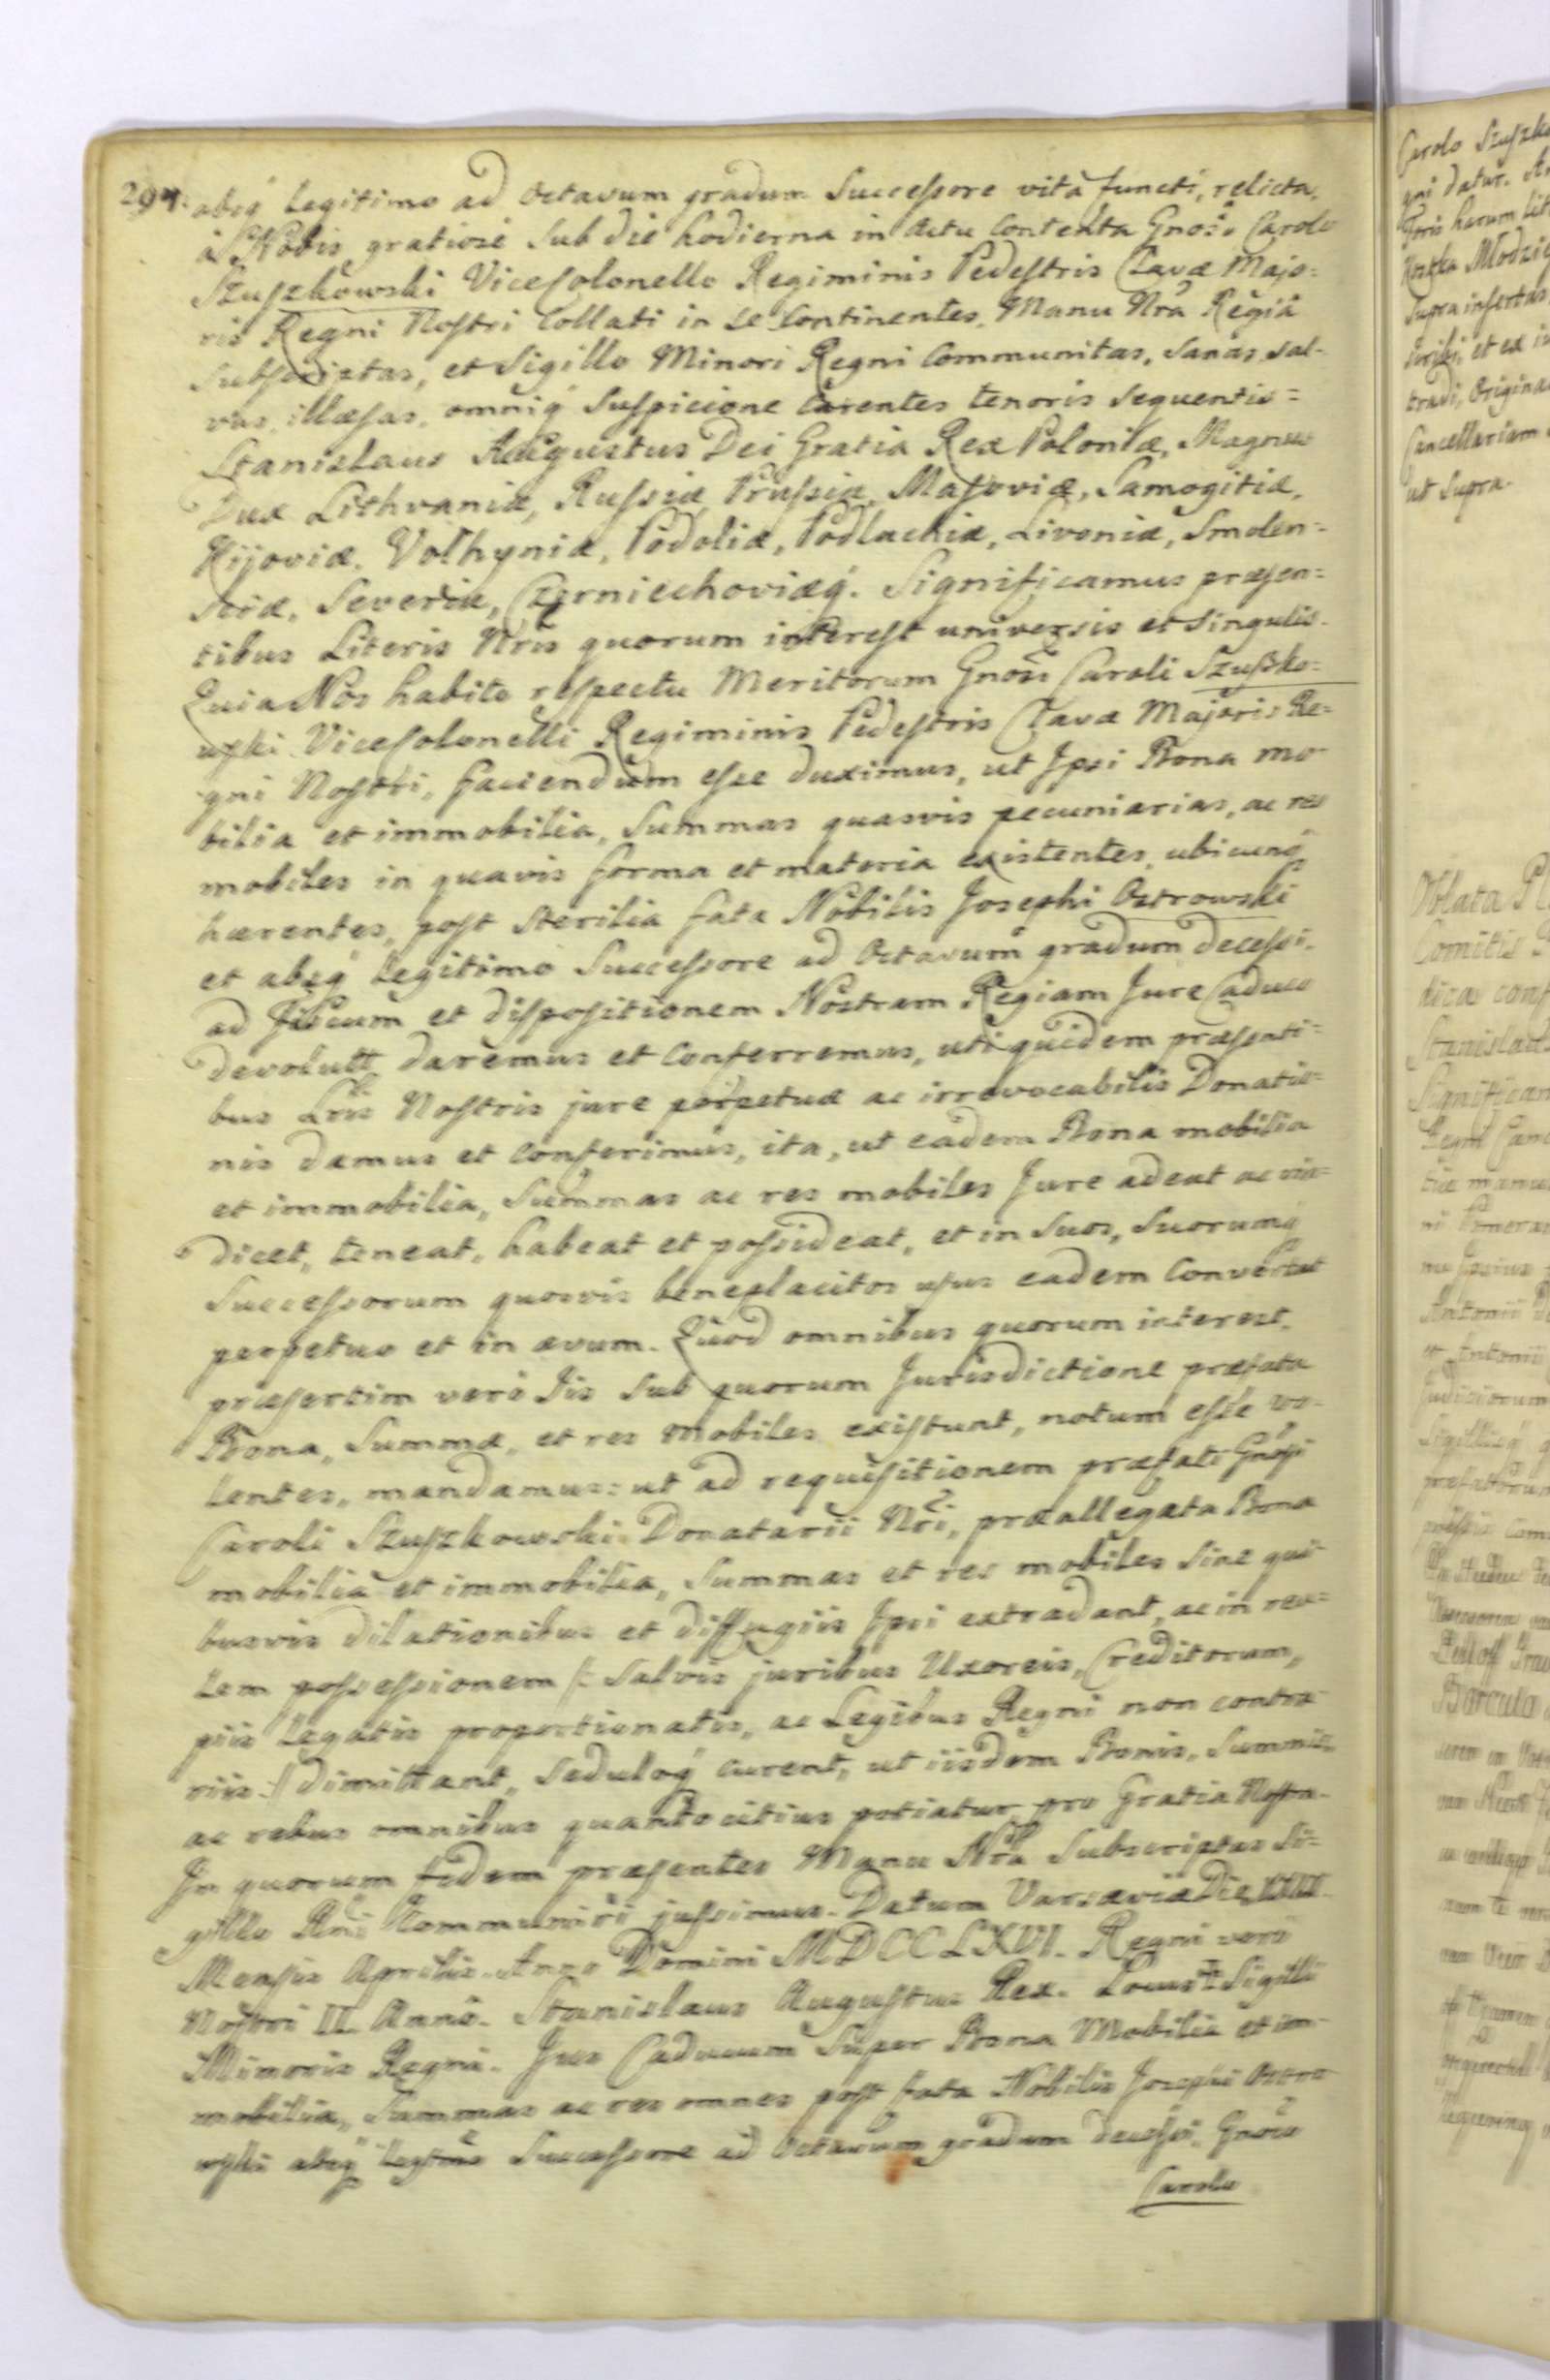 294. absq Legitimo ad Octavum gradum Successore vitâ functi, relicta,
à Nobis gratiose sub die hodierna in Actu Contenta Gnoso Carolo
Szuszkowski ViceColonello Regiminis Pedestris Clavæ Majo=
ris Regni Nostri Collati in se Continentes, Manu Nrâ Regiâ
subscriptas, et Sigillo Minori Regni Communitas, sanas, sal-
vas, illæsas, omniq Suspicione Carentes tenoris sequentis=
Stanislaus Augustus Dei Gratia Rex Poloniæ, Magnus
Dux Lithvaniæ, Russiæ, Prussiæ, Masoviæ, Samogitiæ,
Kijoviæ, Volhyniæ, Podoliæ, Podlachiæ, Livoniæ, Smolen=
sciæ, Severiæ, Czerniechoviæq. Significamus præsen=
tibus Literis Nris quorum interest universis et singulis.
Quia Nos habito respectu Meritorum Gnosi Caroli Szuszko=
wski ViceColonelli Regiminis Pedestris Clavæ Majoris Re=
gni Nostri, faciendum esse duximus, ut Ipsi Bona mo
bilia et immobilia, Summas quasvis pecuniarias, ac res
mobiles in quavis forma et materia existentes, ubicunq
hærentes, post sterilia fata Nobilis Josephi Ostrowski
et absq Legitimo Successore ad Octavum gradum decessi,
ad Fiscum et dispositionem Nostram Regiam Jure Caduco
devoluta daremus et Conferremus, uti quidem præsenti=
bus Lris Nostris jure perpetuæ ac irrevocabilis Donatio=
nis damus et Conferimus, ita, ut eadem Bona mobilia
et immobilia, Summas ac res mobiles Jure adeat ac vin=
dicet, teneat, habeat et possideat, et in suos, Suorumq
Successorum quosvis beneplacitos usus eadem Convertat
perpetuo et in ævum. Quod omnibus quorum interest,
præsertim verò Iis sub quorum Jurisdictione præfata
Bona, Summæ, et res mobiles existunt, notum esse vo-
lentes, mandamus: ut ad requisitionem præfati Gnosi
Caroli Szuszkowski Donatarii Nri, præallegata Bona
mobilia et immobilia, Summas et res mobiles sine qui
busvis dilationibus et diffugiis Ipsi extradant, ac in rea=
lem possessionem /: Salvis juribus Uxoreis, Creditorum,
piis Legatis proportionatis, ac Legibus Regni non contra
riis :/ dimittant, seduloq curent, ut iisdem Bonis, Summis
ac rebus omnibus quantocitius potiatur pro Gratia Nostra.
In quorum fidem præsentes Manu Nrâ Subscriptas Si=
gillo Rni Communiri jussimus. Datum Varsaviæ Die
Mensis Aprilis. Anno Domini MDCCLXVI. Regni verò
Nostri II. Annô. Stanislaus Augustus Rex. Locus Sigilli
Minoris Regni. Jus Caducum super Bona Mobilia et im-
mobilia, Summas ac res omnes post fata Nobilis Josephi Ostro
wski absq Legitimo Successore ad Octavum gradum decessi, Gnoso
Carolo
Carolo
gni datur.
supra insertas
et ex
tradi, Origina
Cancellariam
ut supra.
Oblata
Comitis
Stanislaus
Significam
Antonii
et Antonii